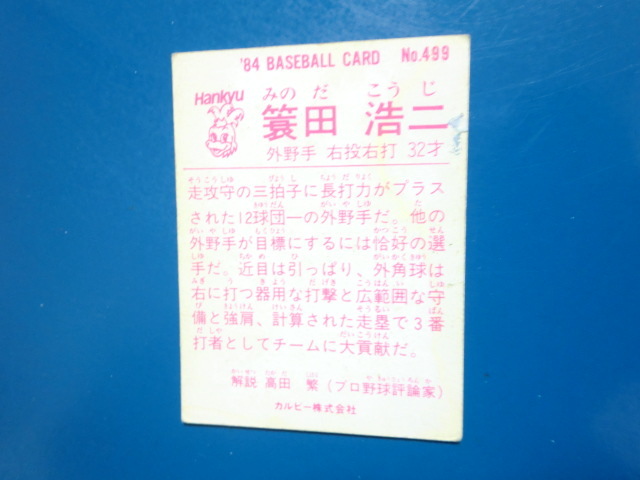 '84 BASEBALL CARD No.499
Hankyu
みのだ こうじ
簑田 浩二
外野手 右投右打 32才
走攻守の三拍子に長打力がプラス
された12球団一の外野手だ。他の
外野手が目標にするには恰好の選
手だ。近目は引っぱり、外角球は
右に打つ器用な打撃と広範囲な守
備と強肩、計算された走塁で3番
打者としてチームに大貢献だ。
解説 高田 繁(プロ野球評論家)
カルビー株式会社